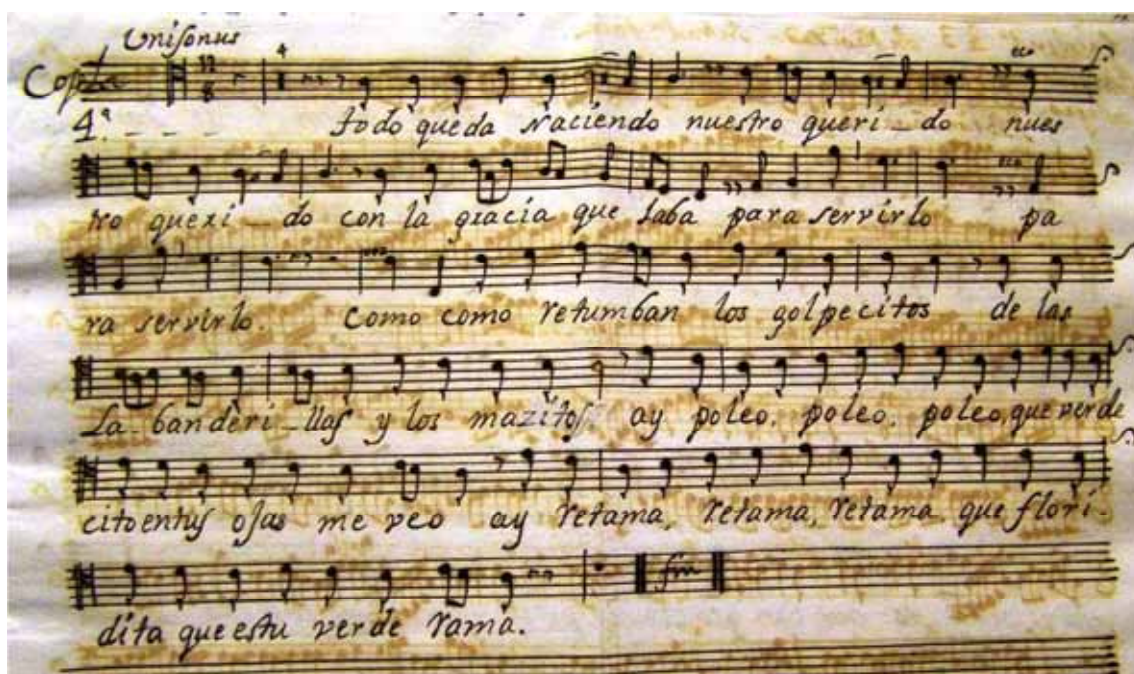 Unisonus
Copla 12 8 4 eco
4ª todo queda Naciendo nuestro queri_do nues
eco
tro queri_do con la gracia que laba para servirlo pa
eco
ra servirlo. Como como retumban los golpecitos de las
La_banderi_llas y los mazitos. ay poleo, poleo, poleo, que verde
citoentus ojas me veo ay retama, retama, retama, que flori_
fin
dita queestu verde rama.